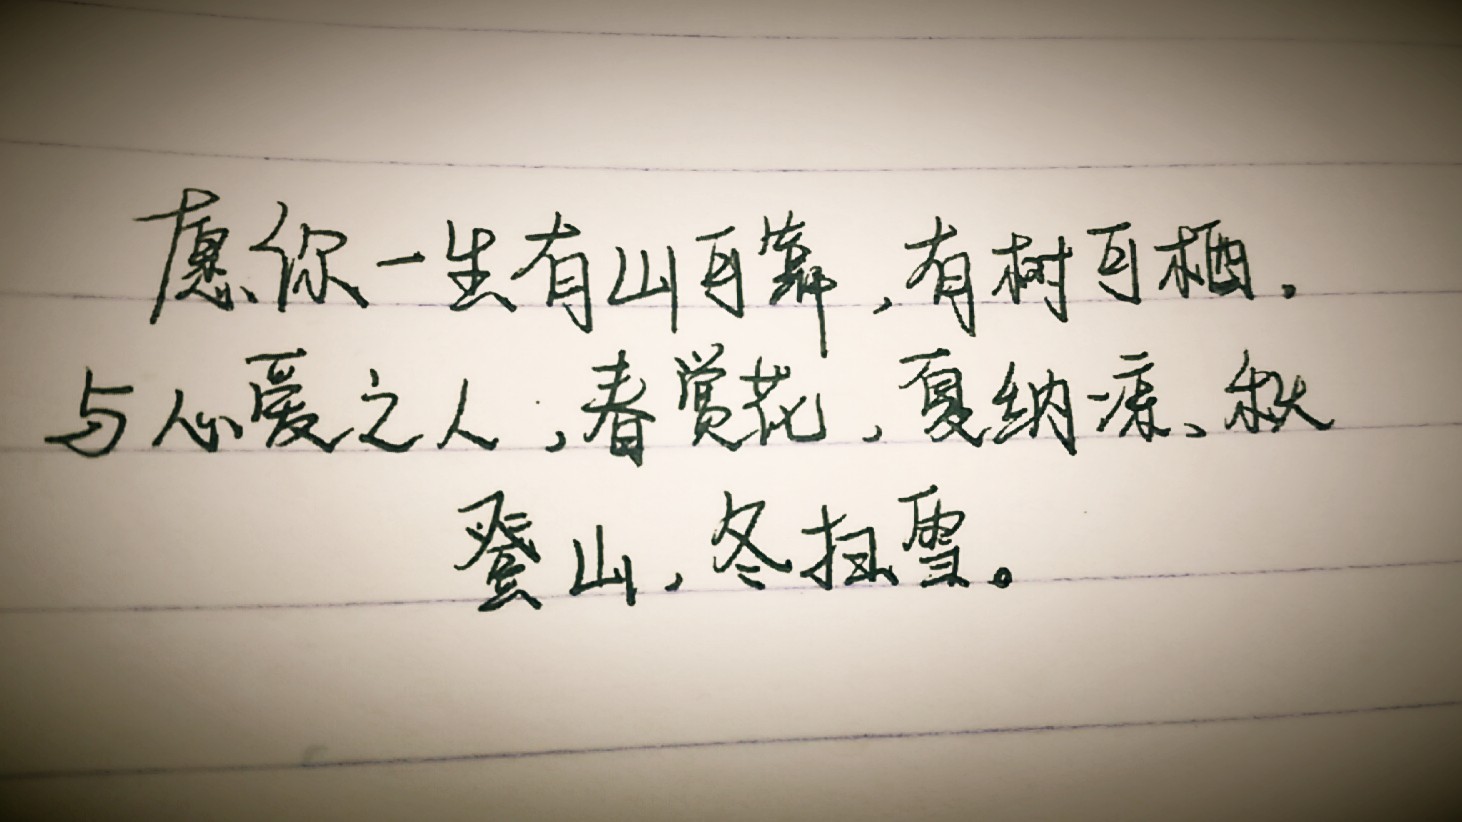 愿你一生有山可靠,有树可栖.
与心爱之人,春赏花,夏纳凉、秋
登山,冬扫雪。